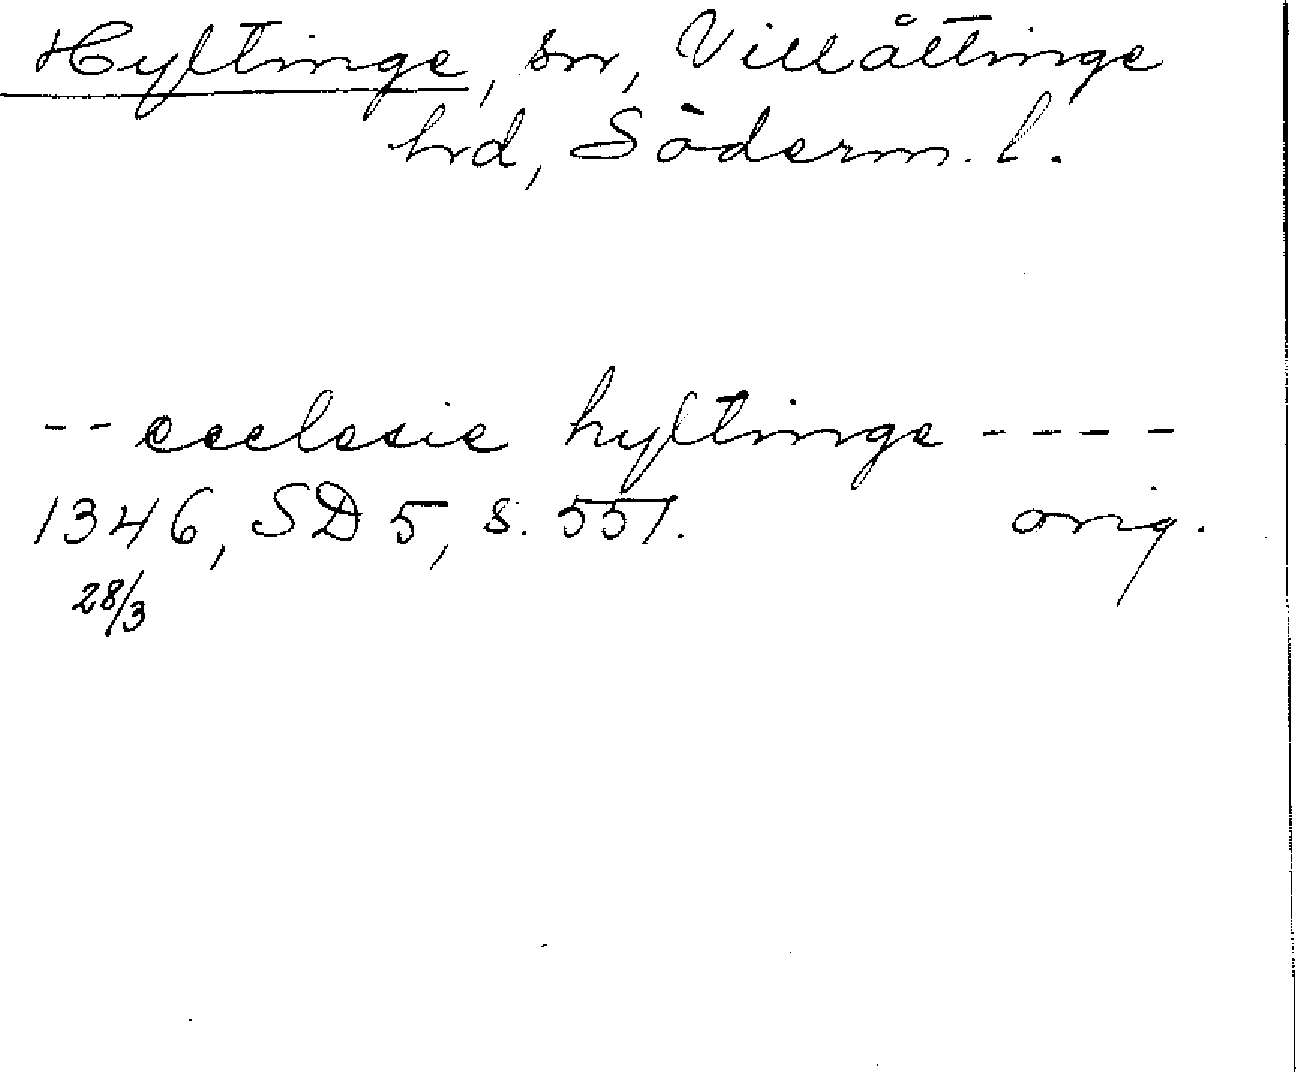 Hyltinge, sn, Villåttinge
hd, Söderm. l.
-- ecclesie hyltinge ----
1346, SD 5, s. 551. orig.
28/3